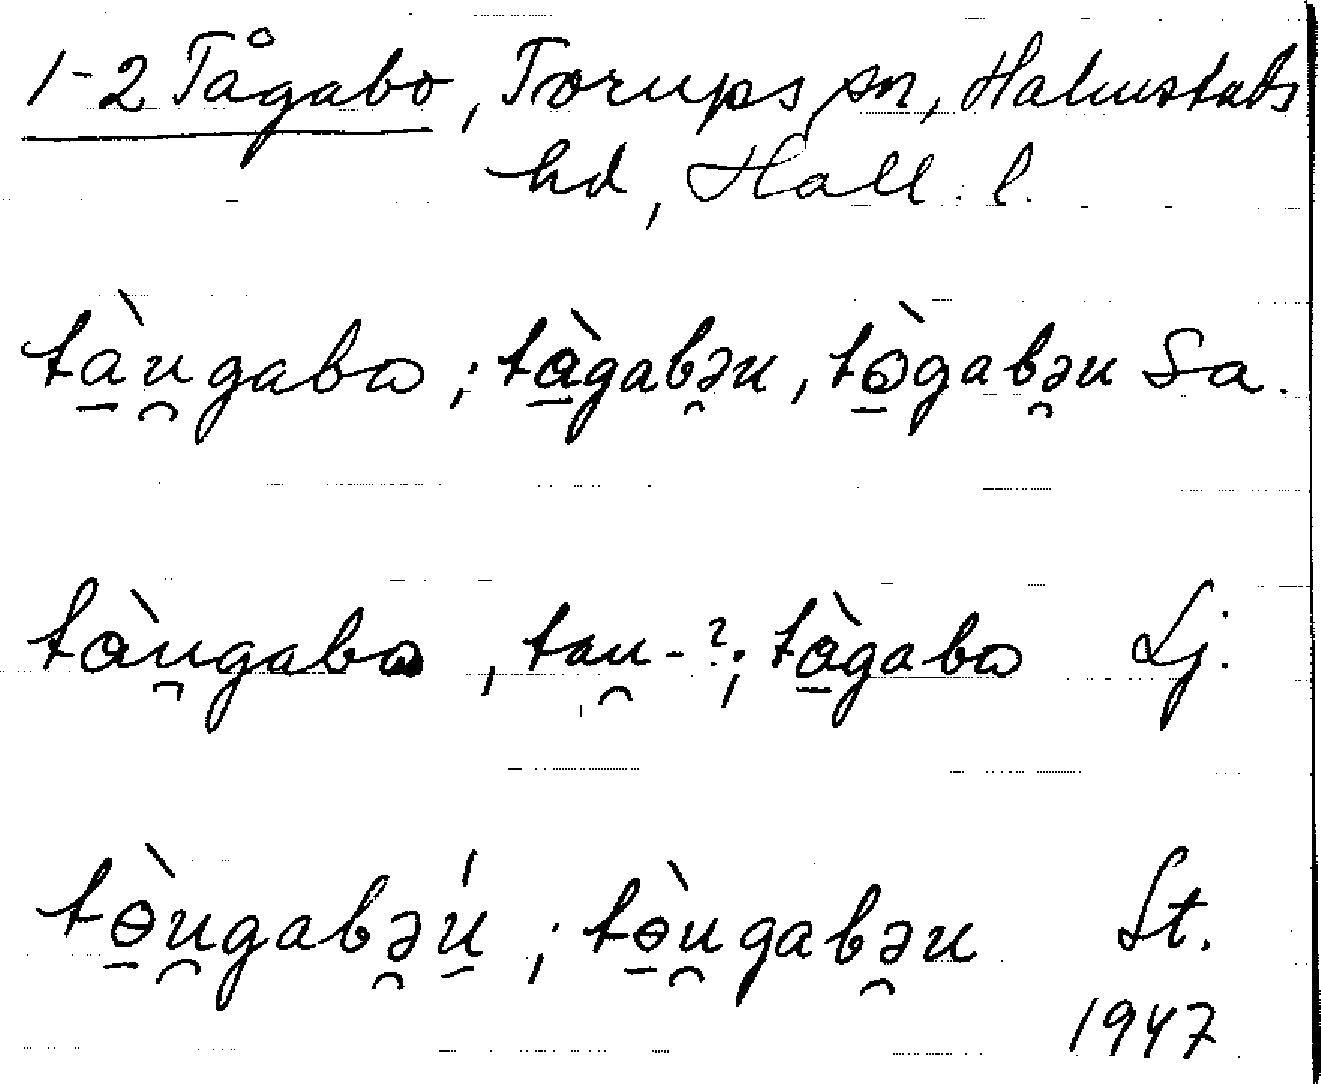 1-2 Tågabo, Torups sn, Halmstads
hd, Hall. l.
tàu̯gabɷ ; tàgabə̯u, tògabə̯u Sa.
tàu̯gabɷ, tau̯-?; tàgabɷ Lj.
tɵ̀u̯gabə̯ú ; tɵ̀u̯gabə̯u St.
1947